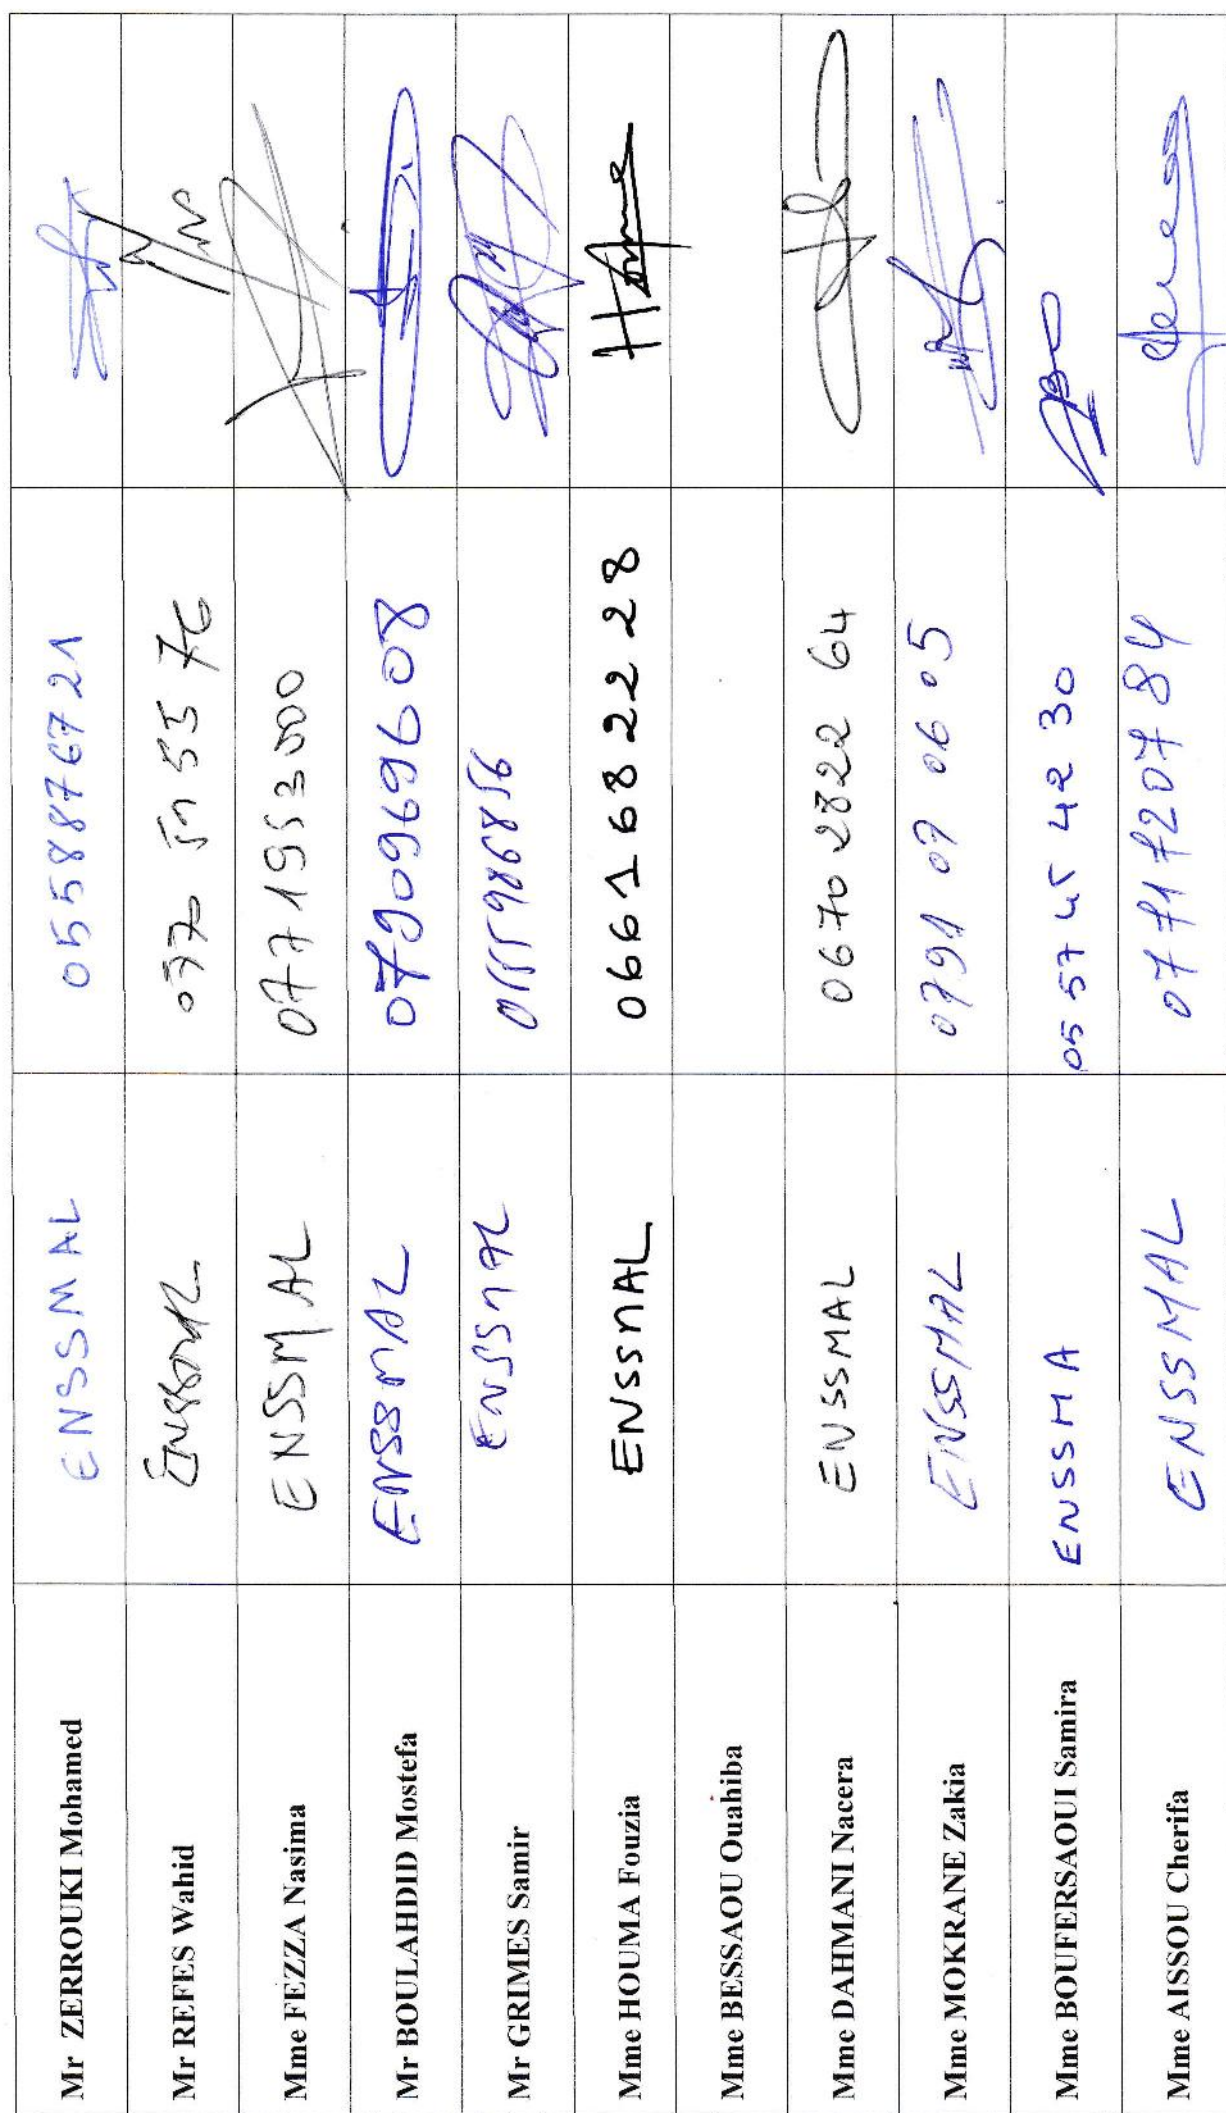 Mr ZERROUKI Mohamed ENSSMAL 0558876721
Mr REFES Wahid 55 76
Mme FEZZA Nasima ENSSMAL 0771953500
Mr BOULAHDID Mostefa ENSSMAL 0790969608
Mr GRIMES Samir ENSSMAL 0555986856
Mme HOUMA Fouzia ENSSMAL 0661682228
Mme BESSAOU Ouahiba
Mme DAHMANI Nacera ENSSMAL 0670 2822 64
Mme MOKRANE Zakia ENSSMAL 0791 07 06 05
Mme BOUFERSAOUI Samira ENSSMA 05 57 45 42 30
Mme AISSOU Cherifa ENSSMAL 0771720784